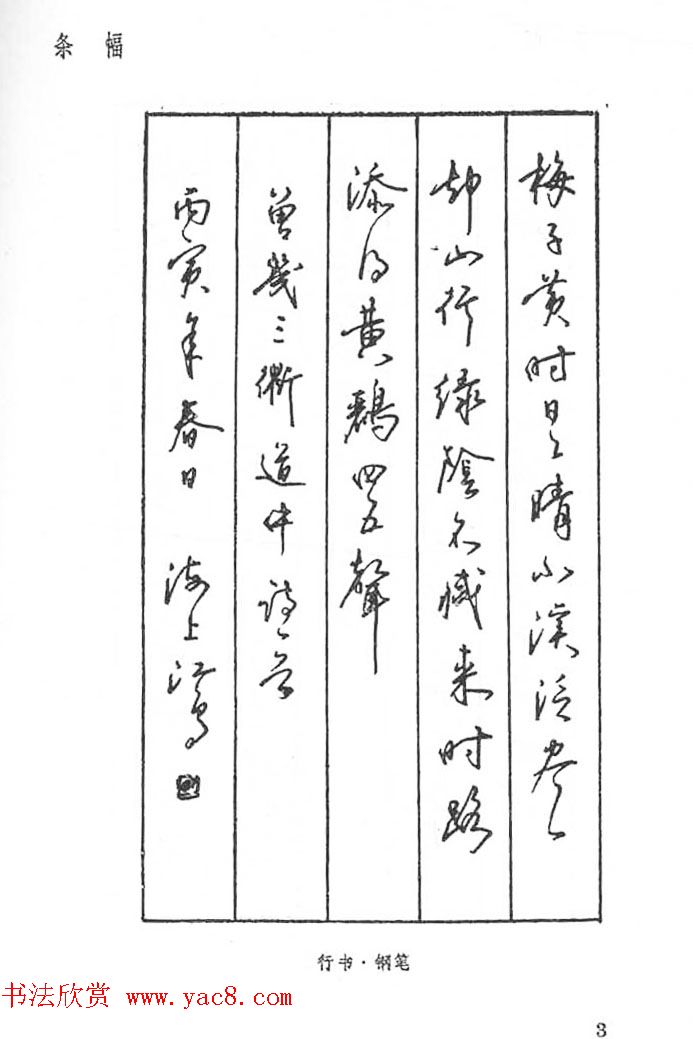 条幅
梅子黄时日日晴小溪泛尽
却山行绿陰不减来时路
添得黄鹂四五聲
曾幾三衢道中诗一首
丙寅年春日 海上江鸟
行书·钢笔
书法欣赏 www.yac8.com
3